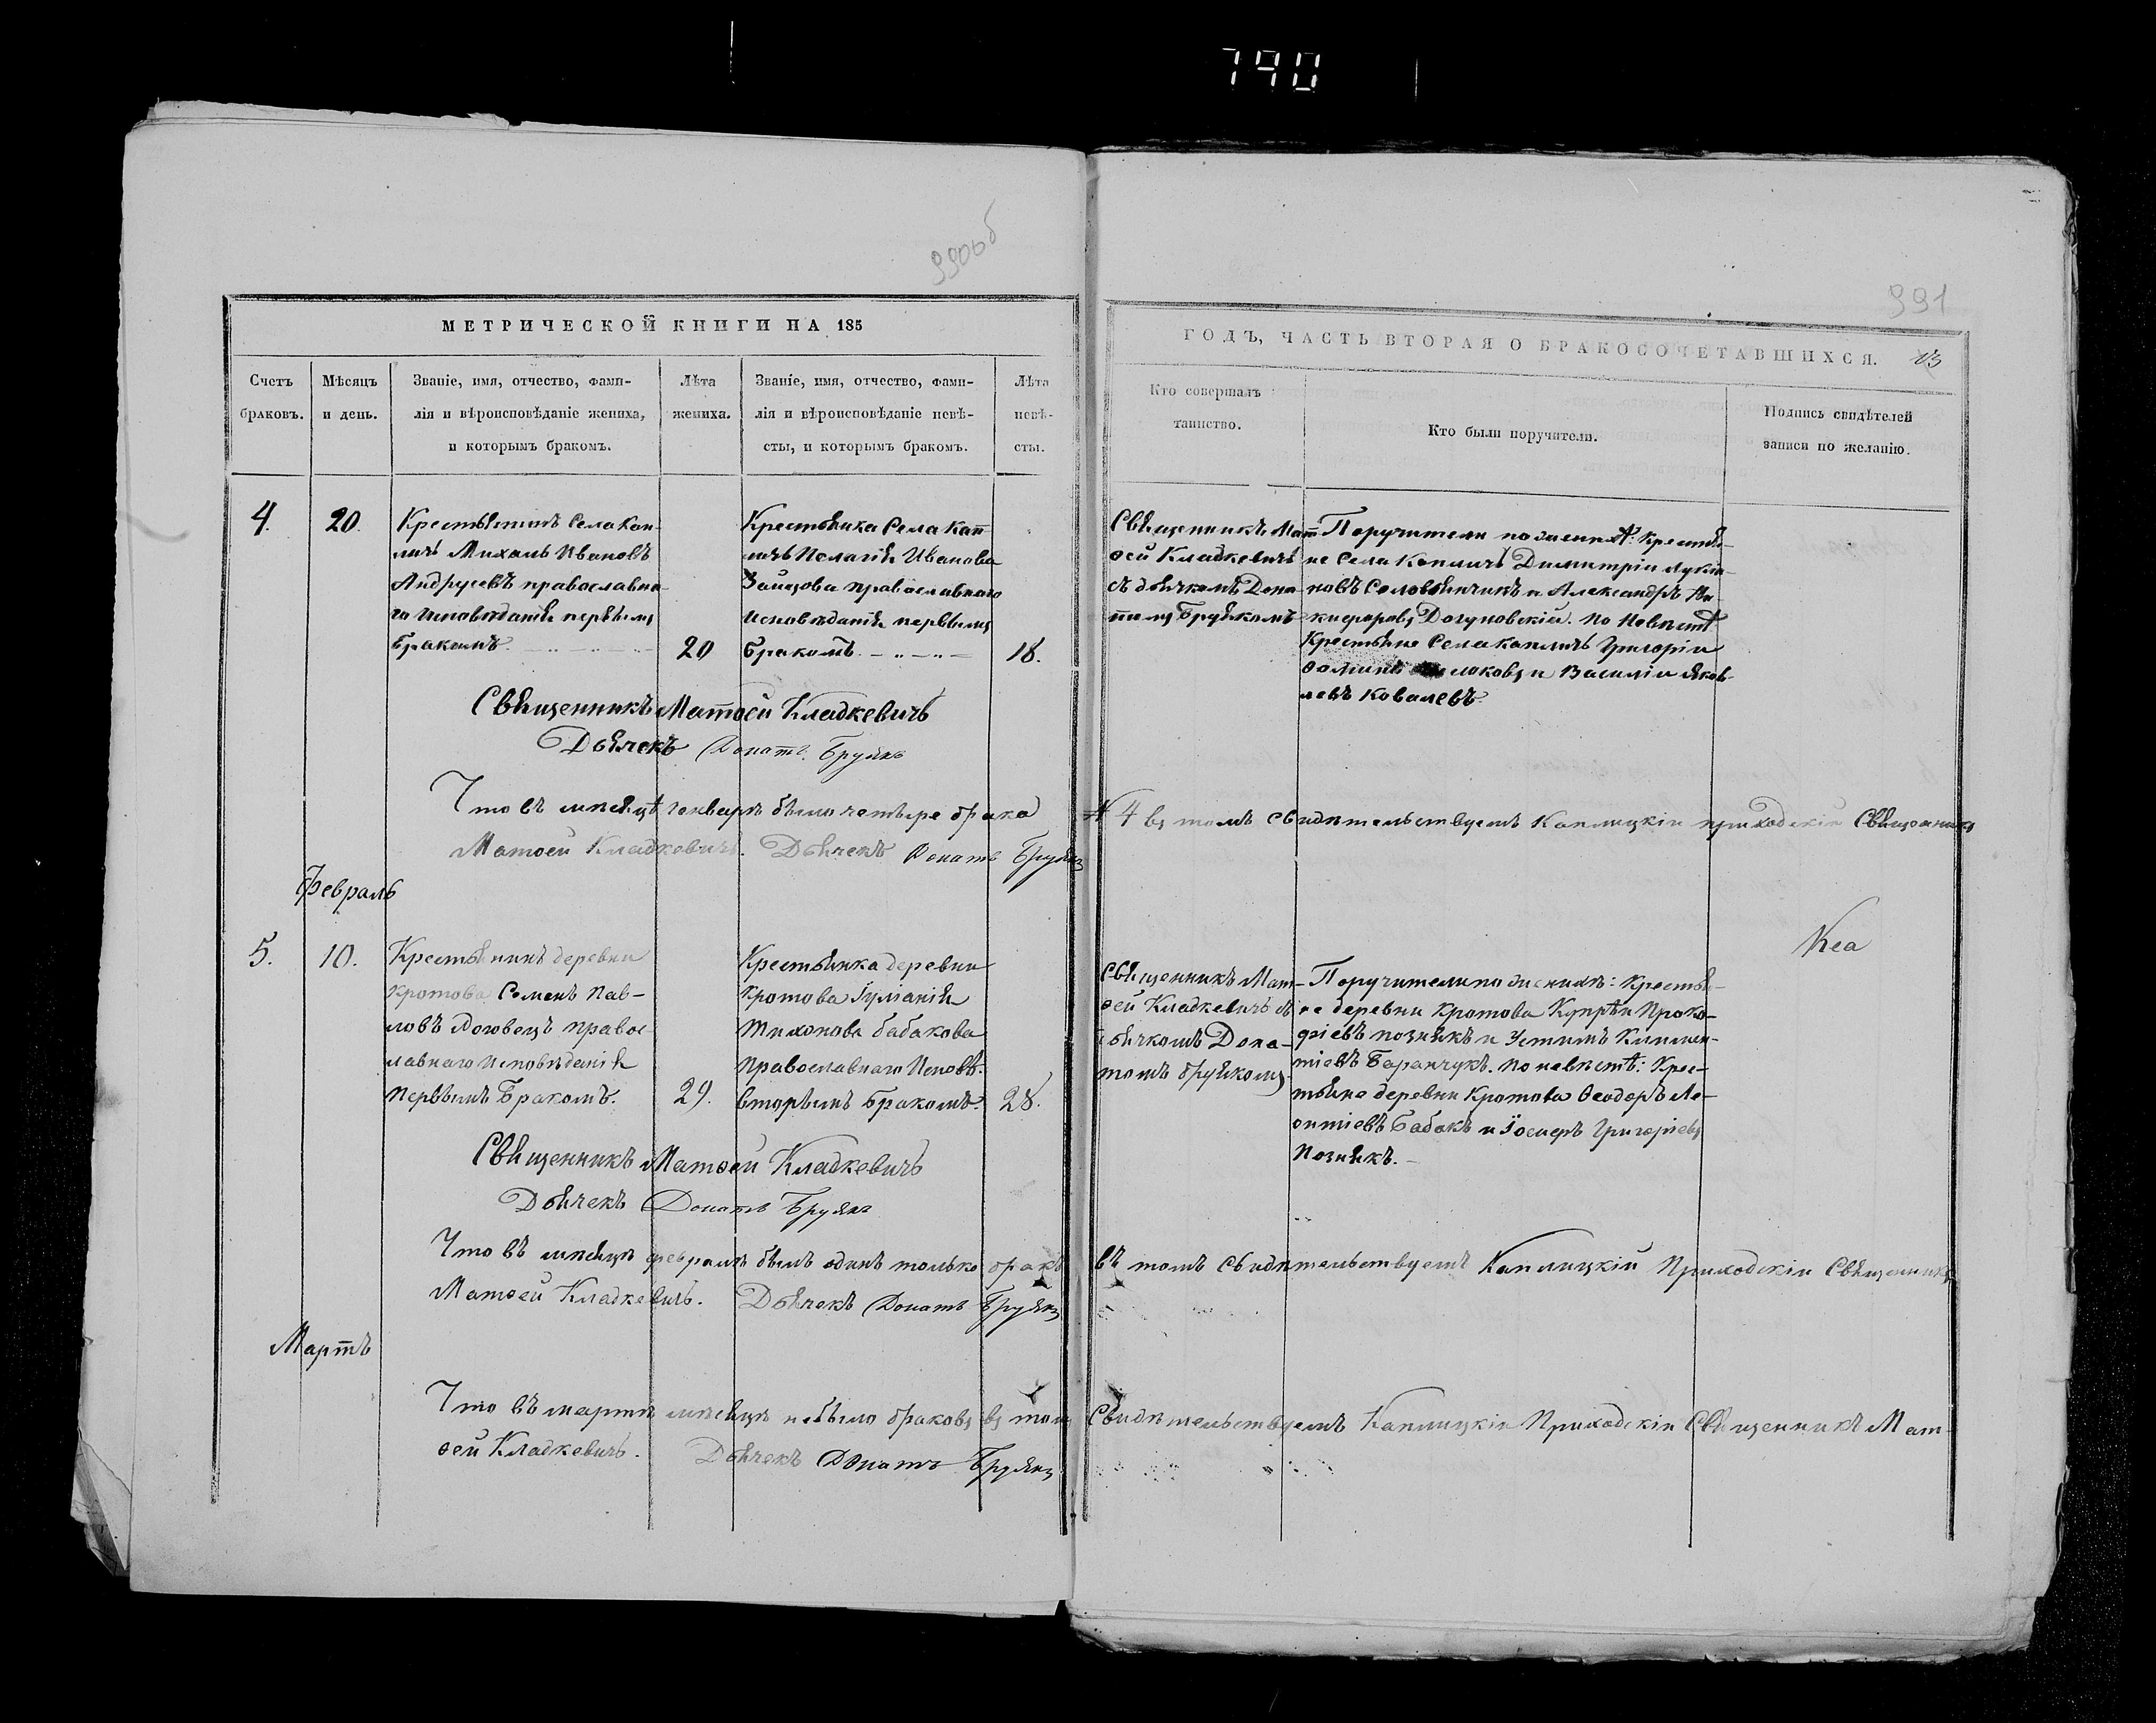 790
990об
991
МЕТРИЧЕСКОЙ КНИГИ НА 185
ГОДЪ, ЧАСТЬ ВТОРАЯ О БРАКОСОЧЕТАВШИХСЯ.
Счетъ
браковъ.
Мѣсяцъ
и день.
Званіе, имя, отчество, фами-
лія и вѣроисповѣданіе жениха,
и которымъ бракомъ.
Лѣта
жениха.
Званіе, имя, отчество, фами-
лія и вѣроисповѣданіе невѣ-
сты, и которымъ бракомъ.
Лѣта
невѣ-
сты.
Кто совершалъ
таинство.
Кто были поручители.
Подпись свидѣтелей
записи по желанію.
4.
20.
Крестьянинъ Села Кап-
личъ Михаль Ивановъ
Андрусевъ православна-
го исповѣданія первымъ
бракомъ.
20
Крестьянка Села Кап-
личъ Пелагія Иванова
Зайцова православнаго
исповѣданія первымъ
бракомъ.
18.
Священникъ Мат-
ѳей Кладкевичъ
съ дьячкомъ Дона-
томъ Бруякомъ
Поручители по женихѣ: крестья-
не Села Капличъ Димитрій Лукья-
новъ Соловьянчикъ и Александръ Ни-
кифоровъ Догуновскій. По Невѣстѣ
Крестьяне Села Капличъ Григорій
Ѳоминъ и Василій Яков-
левъ Ковалевъ.
Священникъ Матѳей Кладкевичъ
Дьячекъ Донатъ Бруякъ
Что въ мѣсяцѣ генварѣ было четыре брака
№ 4 въ томъ свидѣтельствуемъ Каплицкій приходскій Священникъ
Матѳей Кладкевичъ. Дьячекъ Донатъ Бруякъ
Февраль
5.
10.
Крестьянинъ деревни
Кротова Семенъ Пав-
ловъ Логовецъ правос-
лавнаго исповѣданія
первымъ Бракомъ.
29.
Крестьянка деревни
Кротова Іуліанія
Тихонова Бабакова
Православнаго Исповѣ.
вторымъ Бракомъ.
28.
Священникъ Мат-
ѳей Кладкевичъ съ
дьячкомъ Дона-
томъ Бруякомъ
Поручители по женихѣ: Крестья-
не деревни Кротова Купрѣй Проко-
фіевъ Познякъ и Устимъ Климен-
тіевъ Баранчукъ. По невѣстѣ: Крес-
тьяне деревни Кротова Ѳеодоръ Ле-
онтіевъ Бабакъ и Іосифъ Григоріевъ
Познякъ.
Священникъ Матѳей Кладкевичъ
Дьячекъ Донатъ Бруякъ
Что въ мѣсяцѣ февралѣ былъ одинъ только бракъ
въ томъ свидѣтельствуемъ Каплицкій Приходскій Священникъ
Матѳей Кладкевичъ. Дьячекъ Донатъ Бруякъ
Мартъ
Что въ мартѣ мѣсяцѣ небыло браковъ въ томъ
Свидѣтельствуемъ Каплицкій Приходскій Священникъ Мат-
ѳей Кладкевичъ. Дьячекъ Донатъ Бруякъ